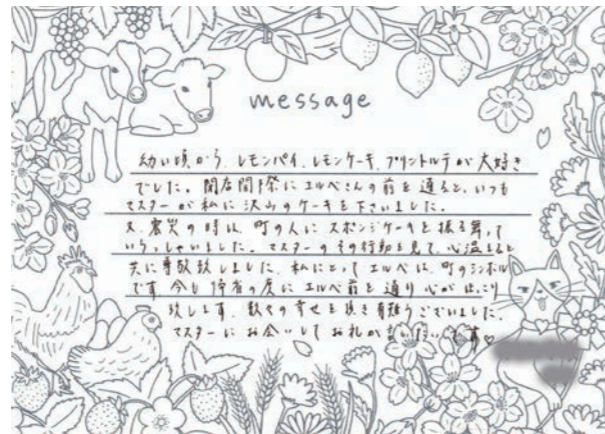 message
幼い頃から、レモンパイ、レモンケーキ、プリントルテが大好き
でした。閉店間際にエルベさんの前を通ると、いつも
マスターが私に沢山のケーキを下さいました。
又、震災の時は、町の人にスポンジケーキを振る舞って
いらっしゃいました。マスターのその行動を見て、心温まると
共に尊敬致しました。私にとってエルベは、町のシンボル
です 今も帰省の度にエルベ前を通り心がほっこり
致します。数々の幸せを 有難うございました。
マスターにお会いしてお礼が言いたいです♡